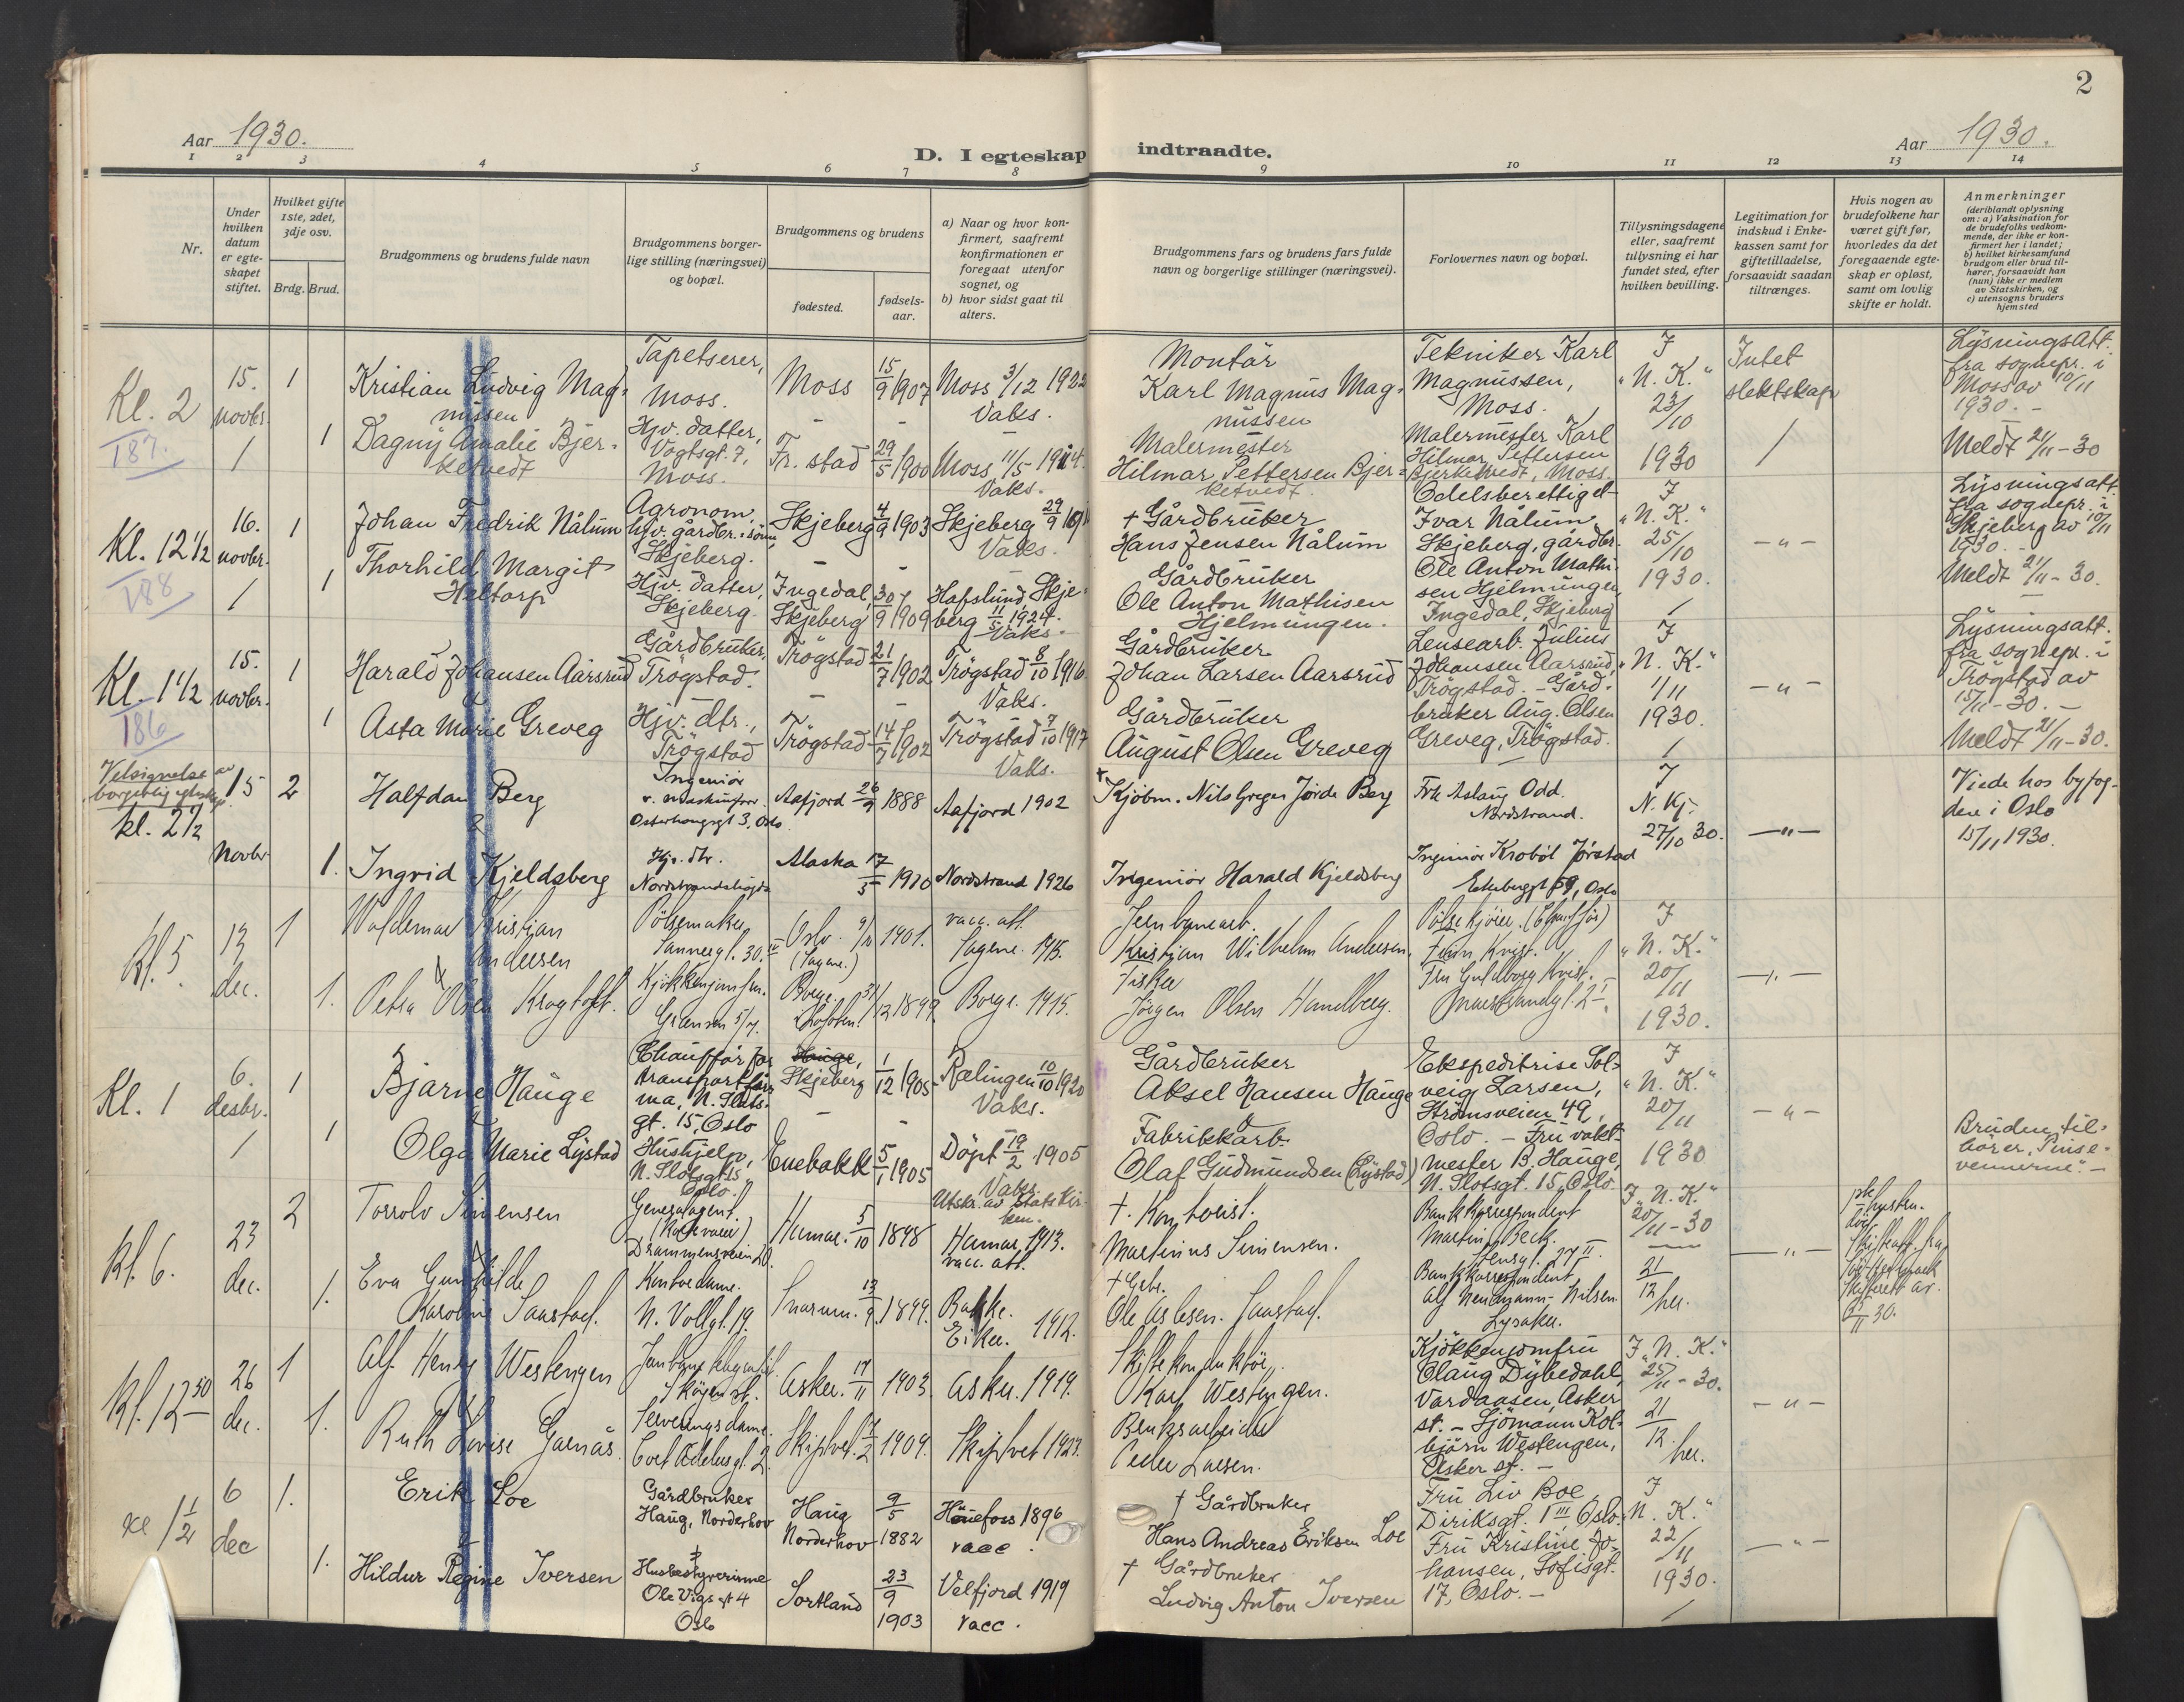 2
Aar 1930.
D. I egteskap indtraadte.
Aar 1930.
1 2 3 4 5 6 7 8 9 10 11 12 13 14
Nr.
Under hvilken datum er egteskapet stiftet.
Hvilket gifte 1ste, 2det, 3dje osv.
Brdg. Brud.
Brudgommens og brudens fulde navn
Brudgommens borgerlige stilling (næringsvei) og bopæl.
Brudgommens og brudens
fødested.
fødselsaar.
a) Naar og hvor konfirmert, saafremt konfirmationen er foregaat utenfor sognet, og
b) hvor sidst gaat til alters.
Brudgommens fars og brudens fars fulde navn og borgerlige stillinger (næringsvei).
Forlovernes navn og bopæl.
Tillysningsdagene eller, saafremt tillysning ei har fundet sted, efter hvilken bevilling.
Legitimation for indskud i Enkekassen samt for giftetilladelse, forsaavidt saadan tiltrænges.
Hvis nogen av brudefolkene har været gift før, hvorledes da det foregaaende egteskap er opløst, samt om lovlig skifte er holdt.
Anmerkninger
(deriblandt oplysning om: a) Vaksination for de brudefolks vedkommende, der ikke er konfirmert her i landet; b) hvilket kirkesamfund brudgom eller brud tilhører, forsaavidt han (hun) ikke er medlem av Statskirken, og c) utensogns bruders hjemsted
Kl. 2
187.
15. novbr.
1
Kristian Ludvig Magnussen
Tapetserer, Moss.
Moss
15/9 1907
Moss 3/12 1922
Vaks.
Montör
Karl Magnus Magnussen
Tekniker Karl Magnussen, Moss.
I "N. K." 23/10 1930
Intet slektskap
Lysningsatt. fra sognepr. i Moss av 10/11 1930. -
Meldt 21/11-30
1
Dagny Amalie Bjerketvedt
Hjv. datter, Vogtsgt. 7, Moss.
Fr. stad
29/5 1900
Moss 11/5 1914.
Vaks.
Malermester
Hilmar Pettersen Bjerketvedt.
Malermester Karl Hilmar Pettersen Bjerketvedt, Moss.
Kl. 12 1/2
188
16. novbr.
1
Johan Fredrik Nålum
Agronom, hjv. gårdbr. sönn, Skjeberg.
Skjeberg
4/9 1903
Skjeberg 29/9
Vaks.
+ Gårdbruker
Hans Jensen Nålum
Odelsberettiget Ivar Nålum, Skjeberg, gårdbr. Ole Anton Mathisen Hjelmungen, Ingedal, Skjeberg
I "N. K." 25/10 1930.
- " -
Lysningsatt. fra sognepr. i Skjeberg av 10/11 1930. -
Meldt 21/11-30.
1
Thorhild Margit Heltorp
Hjv. datter, Skjeberg.
Ingedal, Skjeberg
30/9 1909
Hafslund, Skjeberg 11/5 1924.
Vaks.
Gårdbruker
Ole Anton Mathisen Hjelmungen.
Kl. 1 1/2
186
15. novbr.
1
Harald Johansen Aarsrud
Gårdbruker, Trögstad.
Trögstad
21/7 1902
Trögstad 8/10 1916
Vaks.
Gårdbruker
Johan Larsen Aarsrud
Lensearb. Julius Johansen Aarsrud, Trögstad. - Gårdbruker Aug. Olsen Greveg, Trögstad.
I "N. K." 1/11 1930.
- " -
Lysningsatt. fra sognepr. i Trögstad av 15/11-30. -
Meldt 21/11-30.
1
Asta Marie Greveg
Hjv. dtr., Trögstad
Trögstad
14/7 1902
Trögstad 7/10 1917
Vaks.
Gårdbruker
August Olsen Greveg
Velsignelse av borgerlig egteskap.
kl. 2 1/2
15 Novbr
2
Halfdan Berg
&
Ingeniör
Osterhausgt 3, Oslo.
Aafjord
1888
Aafjord 1902
+ Kjöbm. Nils Greger Jörde Berg
Frk Aslaug Odd. Nordstrand.
I N. Kj. 27/10 30.
- " -
Viede hos byfogden i Oslo 15/11 1930.
1.
Ingrid Kjeldsberg
Hjv. dtr. Nordstrandshögda
Alaska
17/5 1910
Nordstrand 1926
Ingeniör Harald Kjeldsberg
Ingeniör Jörstad
Ekebergt 59, Oslo
Kl. 5
13 dec.
1
Waldemar Kristjan Andersen
Pölsemaker Sannergt. 30.
Oslo. (Sagene.)
1901.
vacc. att. Sagene. 1915.
Jernbanearb.
Kristjan Wilhelm Andersen.
Pölsekjörer. (Chafför) Finn Kvist.
Fru Guldborg Kvist.
I "N. K." 20/11 1930.
1.
Petra Olsen Krogtoft.
Kjökkenjomfru.
Grensen 5/7.
Borge. Lofoten.
31/12 1899.
Borge. 1915.
Fisker
Jörgen Olsen Hamdberg.
Kl. 1
6. desbr.
1
Bjarne Hauge
&
Chafför for transportfirma, N. Slotsgt. 15, Oslo
Skjeberg
1/12 1905
Rælingen 10/10 1920
Vaks.
Gårdbruker
Aksel Hansen Hauge
Ekspeditrise Solveig Larsen, Strömsveien 49, Oslo. - Fru vaktmester B. Hauge, N. Slotsgt. 15, Oslo.
I "N. K." 20/11 1930
- " -
Bruden tilhörer "Pinsevennerne". -
1
Olga Marie Lystad
Hushjelp, N. Slotsgt 15, Oslo.
Enebakk
5/1 1905
Döpt 19/2 1905
Vaks.
Utskr. av Statskirken.
Fabrikkarb.
Olaf Gudmundsen (Lystad)
Kl. 6.
23 dec.
2
Torrolv Simensen
Generalagent. Drammensveien 20.
Hamar.
5/10 1898
Hamar, 1913.
vacc. att.
+. Kontorist.
Martinus Simensen.
Bankkorrespondent Martin Beck.
Stensgt. 27 II.
I "N. K." 20/11-30
21/12 her.
- " -
1ste hustru död.
1.
Eva Gunhilde Karoline Saastad.
Kontordame. N. Vollgt. 19.
Snarum.
13/9. 1899.
Bakke. Eiker. 1912.
Ole Aslesen Saastad.
Bankkorrespondent Alf Neumann-Nilsen. Lysaker.
Kl. 12 30
26 dec.
1
Alf Henry Westengen
Sköyen st.
Asker.
17/11 1903.
Asker. 1919.
Skiftekonduktör.
Karl Westengen.
Kjökkenjomfru Olaug Dybedahl, Vardaasen, Asker st. - Sjömann Kolbjörn Westengen, Asker st. -
I "N. K." 25/11-30.
21/12. her.
- " -
1.
Ruth Lovise Garnås.
Serveringsdame.
Skiptvet.
1909.
Skiptvet 1923.
Bruksarbeider
Peder Larsen.
Kl 1 1/2
6 dec
1.
Erik Loe
&
Gårdbruker Haug, Norderhov
Haug Norderhov
9/5 1882
Hönefoss 1896
vacc.
+ Gårdbruker
Hans Andreas Eriksen Loe
Fru Liv Boe, Diriksgt. 1 III Oslo.
Fru Kristine Johansen, Sofisgt. 17, Oslo. -
I "N. K." 22/11 1930.
- " -
1.
Hildur Regine Iversen
Husbestyrerinne Ole Vigs gt 4 Oslo
Sortland
23/9 1903
Velfjord 1919
vacc.
+ Gårdbruker
Ludvig Anton Iversen